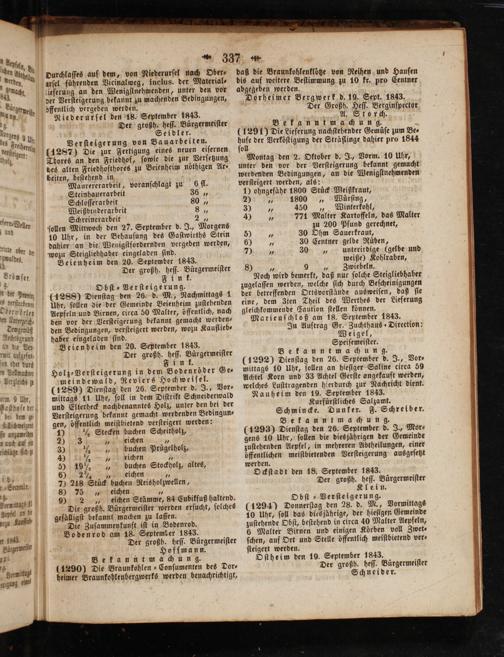 337
Durchlasses auf dem, von Niederursel nach Ober-
ursel führenden Vicinalweg, inclus. der Material-
lieferung an den Wenigstnehmenden, unter den vor
der Versteigerung bekannt zu machenden Bedingungen,
öffentlich vergeben werden.
Niederursel den 18. September 1843.
Der großh. hess. Bürgermeister
Seidler.
Versteigerung von Bauarbeiten.
(1287) Die zur Fertigung eines neuen eisernen
Thores an den Friedhof, sowie die zur Versetzung
des alten Friedhofthores zu Beienheim nöthigen Ar-
beiten, bestehend in
Maurerarbeit, voranschlagt zu 6 fl.
Steinhauerarbeit 36 „
Schlosserarbeit 80 „
Weißbinderarbeit 8 „
Schreinerarbeit 2 „
sollen Mittwoch den 27. September d. J., Morgens
10 Uhr, in der Behausung des Gastwirths Stein
dahier an die Wenigstfordernden vergeben werden,
wozu Steigliebhaber eingeladen sind.
Beienheim den 20. September 1843.
Der großh. hess. Bürgermeister
Fink.
Obst-Versteigerung.
(1288) Dienstag den 26. d. M., Nachmittags 1
Uhr, sollen die der Gemeinde Beienheim zustehenden
Aepfeln und Birnen, circa 50 Malter, öffentlich, nach
den vor der Versteigerung bekannt gemacht werden-
den Bedingungen, versteigert werden, wozu Kauflieb-
haber eingeladen sind.
Beienheim den 20. September 1843.
Der großh. hess. Bürgermeister
Fink.
Holz-Versteigerung in dem Bodenröder Ge-
meindewald, Reviers Hochweisel.
(1289) Dienstag den 26. September d. J., Vor-
mittags 11 Uhr, soll in dem District Schneiderwald
und Sterbeck nachbenanntes Holz, unter den bei der
Versteigerung bekannt gemacht werdenden Bedingun-
gen, öffentlich meistbietend versteigert werden:
1) Stecken buchen Scheitholz,
2) 3 „ eichen „
3) „ buchen Prügelholz,
4) „ eichen „
5) 19½ „ buchen Stockholz, altes,
6) „ eichen „
7) 218 Stück buchen Reisholzwellen,
8) 75 „ eichen „
9) 2 „ eichen Stämme, 84 Cubikfuß haltend.
Die großh. Bürgermeister werden ersucht, solches
gefälligst bekannt machen zu lassen.
Die Zusammenkunft ist in Bodenrod.
Bodenrod am 18. September 1843.
Der großh. hess. Bürgermeister
Hoffmann.
Bekanntmachung.
(1290) Die Braunkohlen-Consumenten des Dor-
heimer Braunkohlenbergwerks werden benachrichtigt,
daß die Braunkohlenklötze von Reihen und Haufen
bis auf weitere Bestimmung zu 10 kr. pro Centner
abgegeben werden.
Dorheimer Bergwerk d. 19. Sept. 1843.
Der Großh. Hess. Berginspector
A. Storch.
Bekanntmachung.
(1291) Die Lieferung nachstehender Gemüse zum Be-
hufe der Verköstigung der Sträflinge dahier pro 1844
soll
Montag den 2. Oktober d. J., Vorm. 10 Uhr,
unter den vor der Versteigerung bekannt gemacht
werdenden Bedingungen, an die Wenigstnehmenden
versteigert werden, als:
1) ohngefähr 1800 Stück Weißkraut,
2) „ 1800 „ Würsing,
3) „ 450 „ Winterkohl,
4) „ 771 Malter Kartoffeln, das Malter
zu 200 Pfund gerechnet,
5) „ 30 Ohm Sauerkraut,
6) „ 30 Centner gelbe Rüben,
7) „ 30 „ unterirdige (gelbe und
weiße) Kohlraben,
8) „ 9 „ Zwiebeln.
Noch wird bemerkt, daß nur solche Steigliebhaber
zugelassen werden, welche sich durch Bescheinigungen
der betreffenden Ortsvorstände ausweisen, daß sie
eine, dem 3ten Theil des Werthes der Lieferung
gleichkommende Caution stellen können.
Marienschloß am 18. September 1843.
In Auftrag Gr. Zuchthaus-Direction:
Weigel,
Speisemeister.
Bekanntmachung.
(1292) Dienstag den 26. September d. J., Vor-
mittags 10 Uhr, sollen an hiesiger Saline circa 59
Achtel Korn und 33 Achtel Gerste angekauft werden,
welches Lusttragenden hierdurch zur Nachricht dient.
Nauheim den 19. September 1843.
Kurfürstliches Salzamt.
Schmincke. Dunker. F. Schreiber.
Bekanntmachung.
(1293) Dienstag den 26. September d. J., Mor-
gens 10 Uhr, sollen die diesjährigen der Gemeinde
zustehenden Aepfel, in mehreren Abtheilungen, einer
öffentlichen meistbietenden Versteigerung ausgesetzt
werden.
Ockstadt den 18. September 1843.
Der großh. hess. Bürgermeister
Klein.
Obst-Versteigerung.
(1294) Donnerstag den 28. d. M., Vormittags
10 Uhr, soll das diesjährige, der hiesigen Gemeinde
zustehende Obst, bestehend in circa 40 Malter Aepfeln,
6 Malter Birnen und einigen Körben voll Zwet-
schen, auf Ort und Stelle öffentlich meistbietend ver-
steigert werden.
Ostheim den 19. September 1843.
Der großh. hess. Bürgermeister
Schneider.